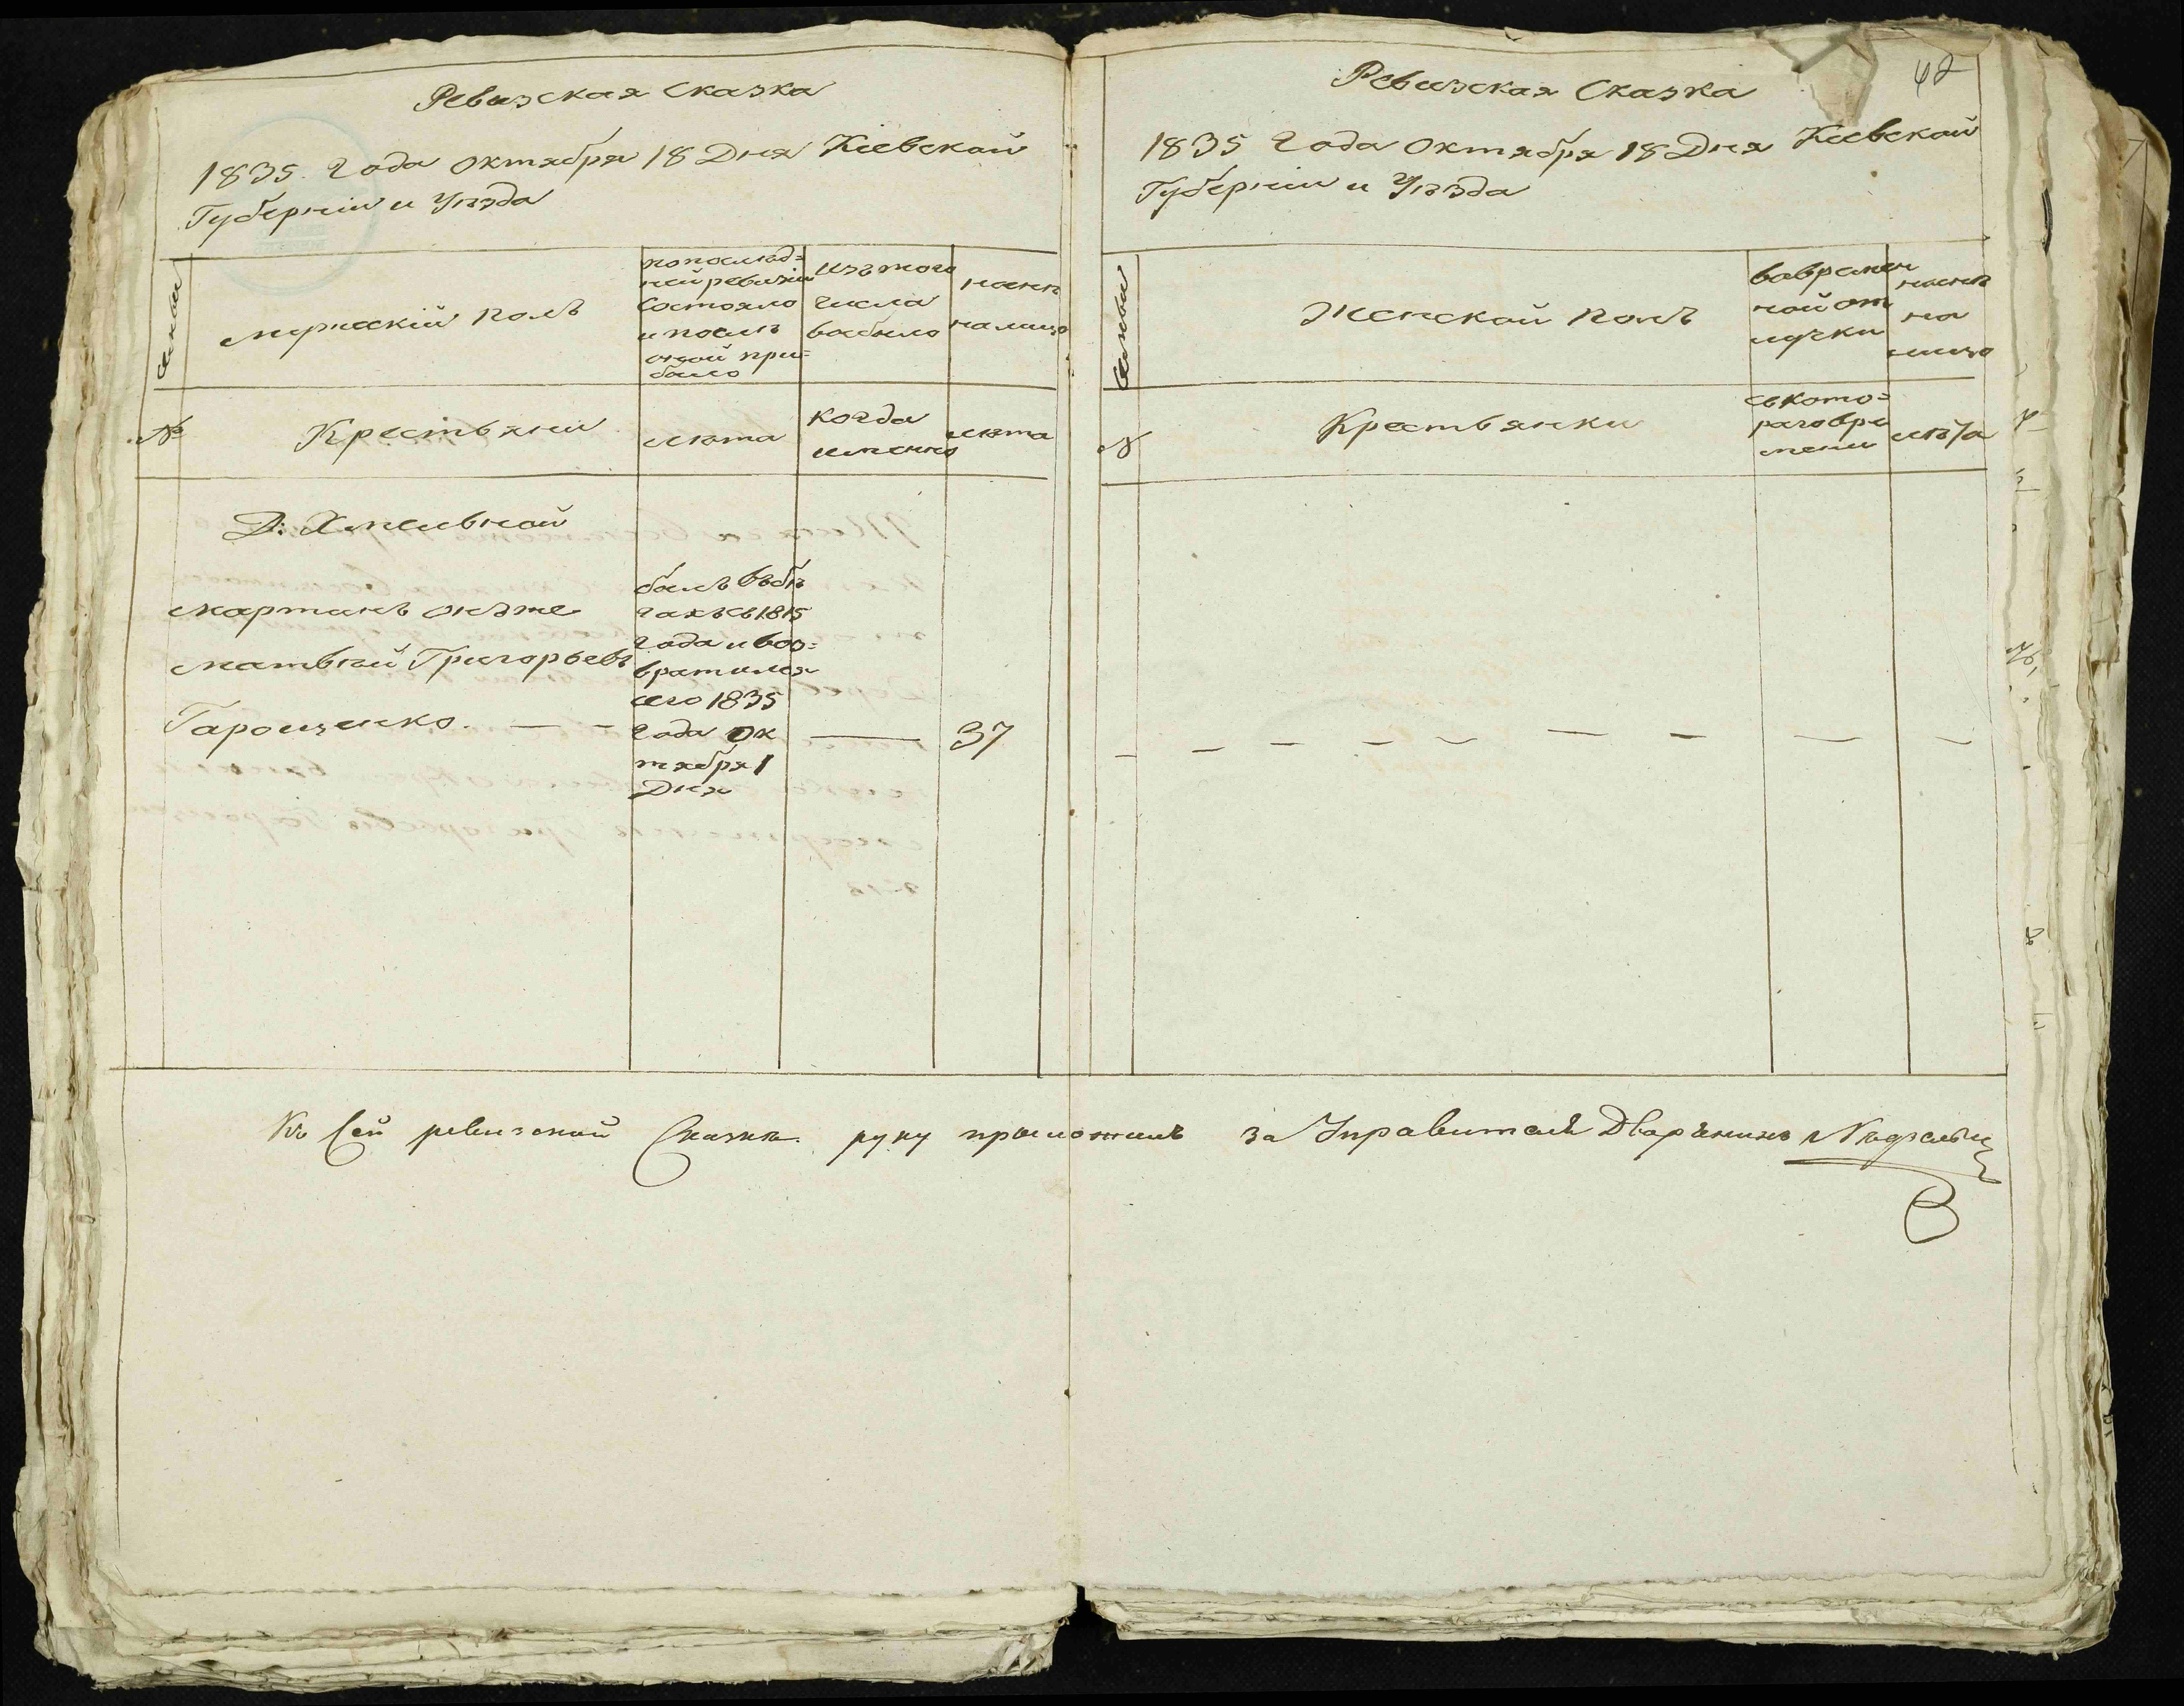 Ревизская сказка
1835. года октября 18 Дня Кіевской
Губерніи и Уѣзда
Семьи
мужескій полъ
попослѣд=
ней ревизіи
состояло
и послѣ
оной при=
было
изъ того
числа
выбыло
нынѣ
налицо
№
Крестьяни
лѣта
когда
имянно
лѣта
Д: Хмелвной
Мартинъ онъже
Матвѣй Григорьевъ
Гарощенко. — —
былъ вбѣ
гахъ съ 1815
года и воз=
вратился
сего 1835
года Ок
тября 1
Дня
—
37
Ревизская Сказка
42
1835 Года Октября 18 Дня Кіевской
Губерніи и Уѣзда
Семьи
Женской полъ
вовремен
ной от
лучки
нынѣ
на
лицо
№
Крестьянки
съкото=
раговре
мени
лѣта
— — — — — — — — —
Къ сей ревизской Сказке руку приложилъ за Управителя Дворянинъ